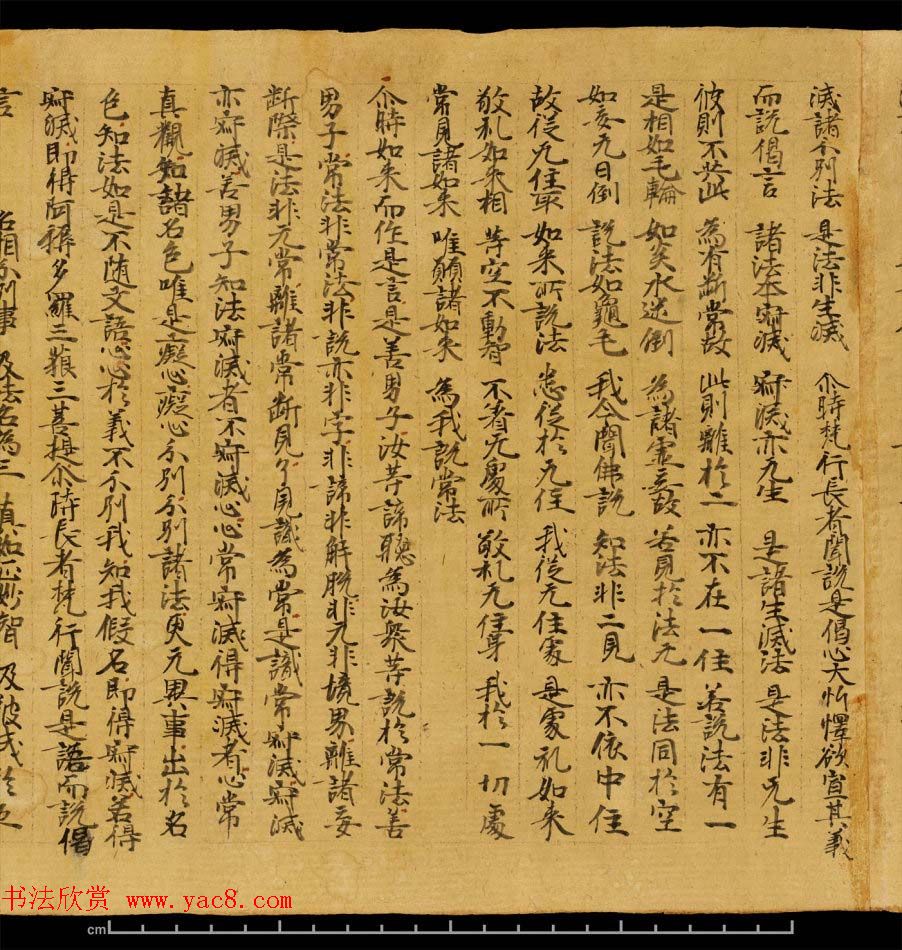 滅諸分別法　是法非生滅　尒時梵行長者聞說是偈心大忻懌欲宣其義
而說偈言　諸法本寂滅　寂滅亦无生　是諸生滅法　是法非无生
彼則不共此　為有斷常故　此則離於二　亦不在一住　若說法有一
是相如毛輪　如炎水迷倒　為諸虛妄故　若見於法无　是法同於空
如妄无日倒　說法如龜毛　我今聞佛說　知法非二見　亦不依中住
故從无住取　如來所說法　悉從於无住　我從无住處　是處礼如來
敬礼如來相　等空不動智　不著无處所　敬礼无住身　我於一切處
常見諸如來　唯願諸如來　為我說常法
尒時如來而作是言是善男子汝等諦聽為汝眾等說於常法善
男子常法非常法非說亦非字非諦非解脫非无非境界離諸妄
断際是法非无常離諸常断見了見識為常是識常寂滅寂滅
亦寂滅善男子知法寂滅者不寂滅心心常寂滅得寂滅者心常
真觀知諸名色唯是癡心癡心分別分別諸法更无異事出於名
色知法如是不随文語心心於義不分別我知我假名即得寂滅若得
寂滅即得阿耨多羅三藐三菩提尒時長者梵行聞說是語而說偈
言　名相分別事　及法名為三　真如正妙智　及彼成於五
书法欣赏 www.yac8.com
cm